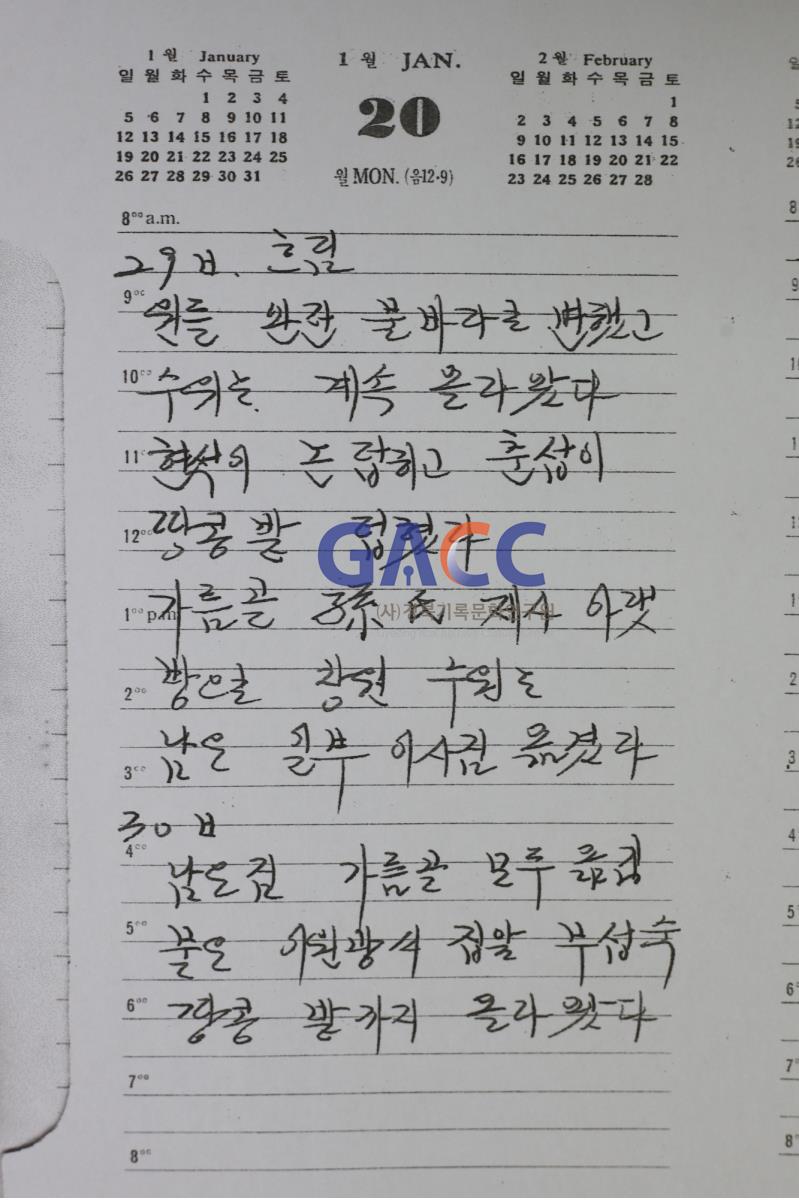 1월 January
일 월 화 수 목 금 토
1 2 3 4
5 6 7 8 9 10 11
12 13 14 15 16 17 18
19 20 21 22 23 24 25
26 27 28 29 30 31
1월 JAN.
20
월 MON. (음12·9)
2월 February
일 월 화 수 목 금 토
1
2 3 4 5 6 7 8
9 10 11 12 13 14 15
16 17 18 19 20 21 22
23 24 25 26 27 28
8⁰⁰ a.m.
29日. 흐림
9⁰⁰
원들 완전 물바다로 변했고
10⁰⁰ 수위는 계속 올라왔다
11⁰⁰ 현식이 논 답히고 춘섭이
12⁰⁰ 땅콩밭 덥혔다
GACC
(사)전북기록문화연구원
1⁰⁰ p.m. 가름골 孫氏 제사 아랫
2⁰⁰ 방으로 창원 수원는
3⁰⁰ 남은 일부 이사짐 옮겼다
30日
4⁰⁰ 남은짐 가름골 모두 옮김
5⁰⁰ 물은 집앞 부섭숙
6⁰⁰ 땅콩 밭까지 올라왔다
7⁰⁰
8⁰⁰